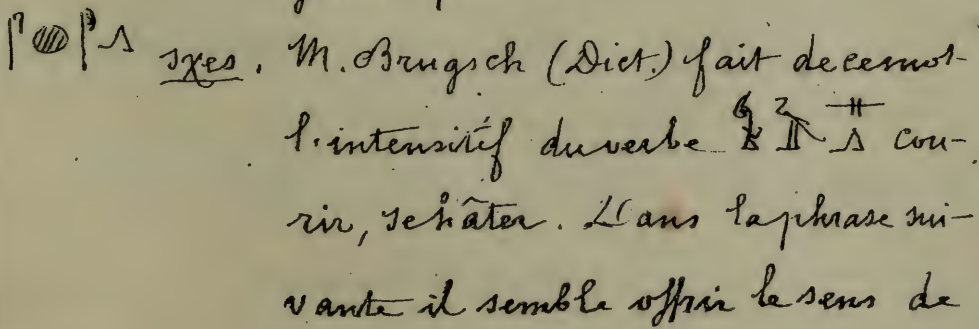 𓋴𓐍𓋴𓂻 sχes. M. Brugsch (Dict.) fait de ce mot
l'intensitif du verbe 𓂻 cou-
rir, se hâter. Dans la phrase sui-
vante il semble offrir le sens de